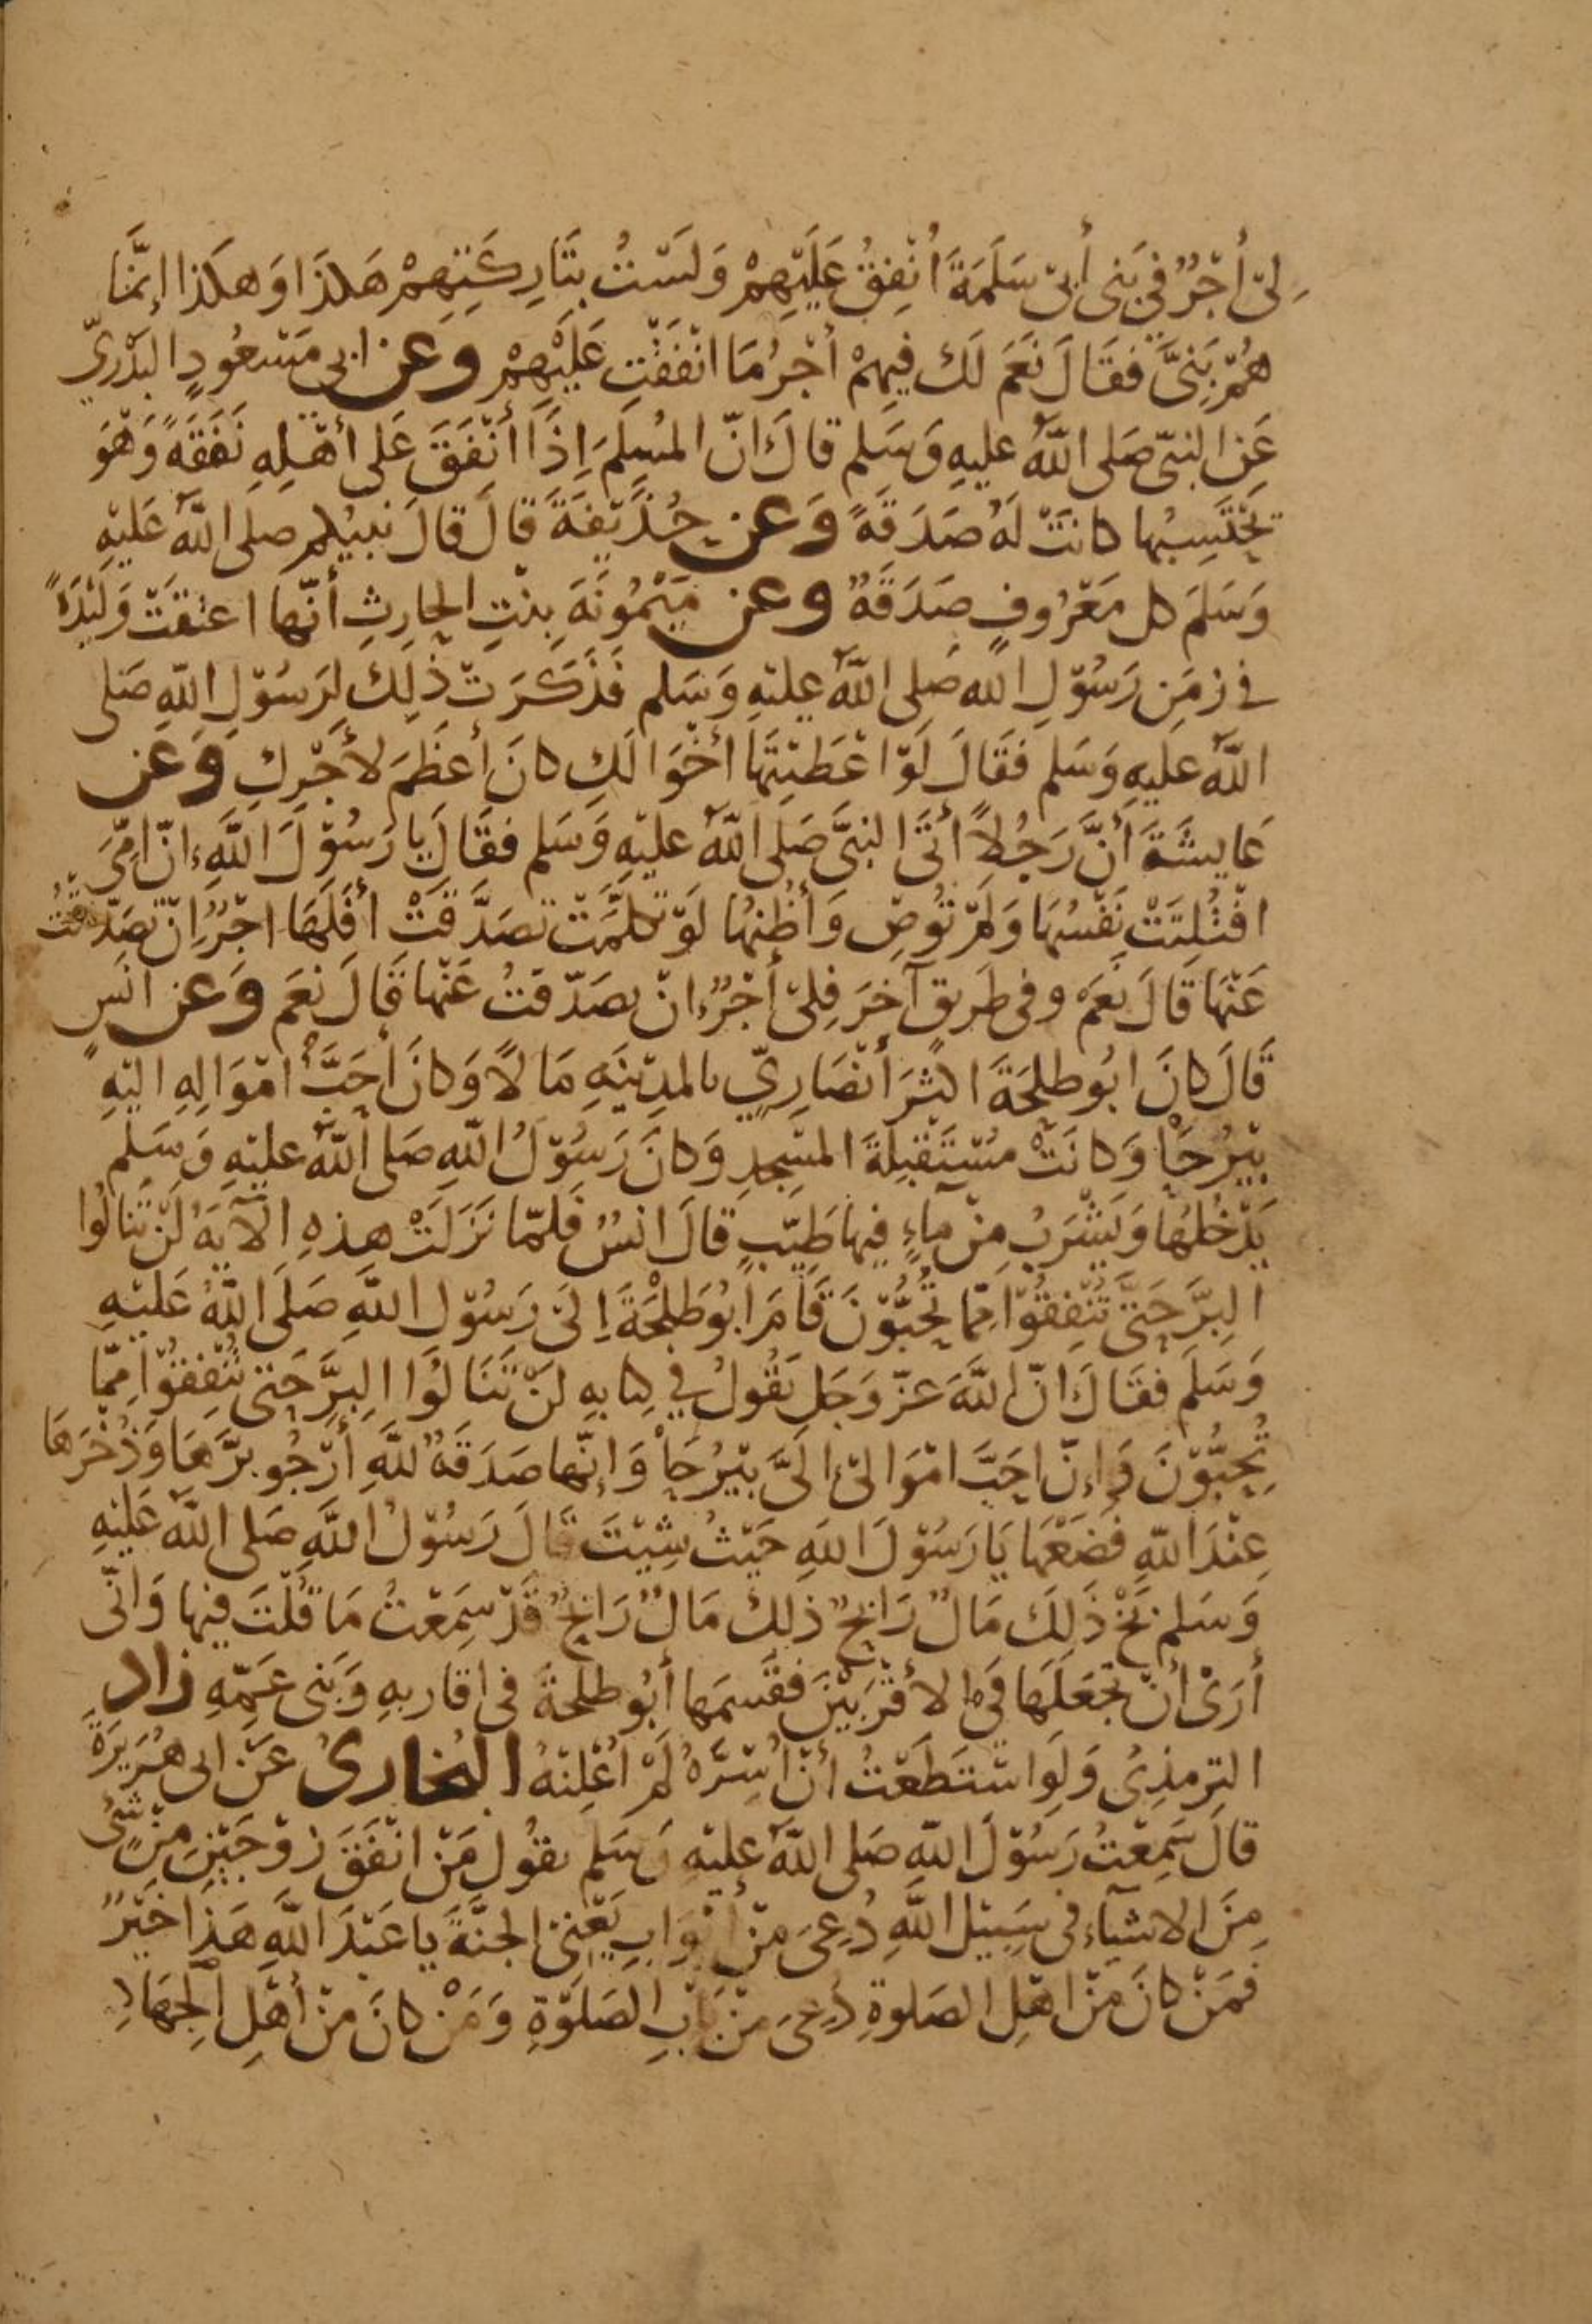 لِىّ أَجْرٌ فِي بَنِى أَبِىْ سَلَمَةَ اُنْفِقُ عَلَيْهِمْ وَلَسْتُ بِتَارِكَتِهِمْ هَكَذَا وَهكَذا إِنَّمَا
هُمْ بَنِىَّ فَقَالَ نَعَمَ لَكِ فِيهِمْ أَجْرُ مَا انْفَقْتِ عَلَيْهِمْ وَعن ابى مَسْعُودٍ البَدْرِيِّ
عَنِ النبىّ صَلى اللّهُ عليهِ وَسَلم قالَ انّ المسْلِمَ اِذَا أَنْفَقَ عَلى أهْلِهِ نَفَقَةً وَهْوَ
يَحْتَسِبُها كانَتْ لَهُ صَدَقَةً وَعن حُذَيْفَةَ قالَ قالَ نبيُكم صلى اللّهُ عَليْهِ
وَسَلمَ كل مَعْرُوفٍ صَدَقَةٌ وعن مَيْمُونَةَ بِنْتِ الحارِثِ أنّها اعتَقَتْ وَلِيْدَةً
في زمَنِ رَسُوْلِ اللهِ صَلى اللّهُ عليْهِ وَسَلم فَذَكَرَتْ ذٰلِكَ لرَسُوْلِ اللّهِ صَلى
اللّهُ عليهِ وَسَلم فَقَالَ لَوْ اعْطَيْتِهَا أَخْوَالَكِ كانَ أعْظَمَ لأَجْرِكِ وَعَن
عَايِشَةَ أَنَّ رَجُلاً أَتَى النبىَّ صَلى اللّهُ عليْهِ وَسَلم فقَالَ يَا رَسُوْلَ اللَّهِ انّ امّىَ
افْتُلِتَتْ نَفْسُهَا وَلمْ تُوصِ وَأظُنهَا لَوْ تكلمَتْ تصَدَّقَتْ أَفَلَهَا اجْرٌ اِنْ تصَدّقتُ
عَنْهَا قَالَ نعَمْ وفى طَرِيقٍ آخرَ فِلِىْ أَجْرٌ اِنْ تصَدّقتُ عَنْها قَالَ نعَم وَعن انَسٍ
قَالَ كانَ ابُو طلحَةَ اكثرَ أنْصَارِيّ بالمدِيْنَةِ مَالاً وَكانَ أَحَبَّ امْوَالِهِ اليْهِ
بَيْرُحَاْ وَكانَتْ مُسْتَقْبِلَةَ المسْجِدِ وَكانَ رَسُوْلُ اللّهِ صَلى اللّهُ عليْهِ وَسَلم
يَدْخُلهَا وَيَشْرَبُ مِنْ مَاءٍ فيها طَيِّبٍ قالَ انسٌ فَلمّا نَزَلَتْ هذهِ الآيَةُ لَنْ تَنالُوا
البِرَّ حَتىَّ تُنْفِقُوْا مِمّا تُحِبُّوْنَ قَامَ ابُو طَلْحَةَ اِلىَ رَسُوْلِ اللَّهِ صَلَى اللَّهُ عَليْهِ
وَسَلَم فقَالَ انّ اللَّهَ عزّ وَجَل يَقُولُ في كتابِهِ لَنْ تَنَالُوا البِرَّ حَتى تُنْفِقُوْا مِمّا
تُحِبُّوْنَ وَإنّ احَبَّ امْوَالىْ اِلَىَّ بَيْرُحَاْ وَإنّها صَدَقَةٌ للَّهِ أَرْجُو برَّهَا وَذُخْرَهَا
عِنْدَ اللّهِ فَضَعْهَا يَا رَسُوْلَ اللهِ حَيْثُ شِيْتَ قَالَ رَسُوْلُ اللَّهِ صَلى اللّهُ عَليْهِ
وَسَلم بَخْ ذَلِكَ مَالٌ رَابِحٌ ذلِكَ مَالٌ رَابِحٌ قَدْ سَمِعْتُ مَا قُلْتَ فيها وَانّى
أَرَىْ أَنْ تَجْعَلَهَا في الأقْرَبِيْنَ فقَسمَها أَبُو طلحَةَ فى اقاربِهِ وَبَنى عَمِّهِ زاد
الترمذِىُ وَلَوِ اسْتَطَعْتُ أَنْ اُسِرَّهُ لَمْ اُعْلِنْهُ البُخارىُ عَنْ ابى هُرَيرَةَ
قالَ سَمِعْتُ رَسُوْلَ اللهِ صَلى اللّهُ عليْهِ وَسَلم يقُول مَنْ انْفَقَ زوْجَيْنِ مِنْ شىْءٍ
مِنَ الاشيآءِ فى سَبِيْل اللَّهِ دُعِىَ مِنْ أَبْوَابِ يَعْنىْ الجنَّةَ يا عَبْدَ اللَّهِ هَذا خَيْرٌ
فمَنْ كانَ مِنْ اهْلِ الصَلوةِ دُعِىَ مِنْ بَابِ الصَلَوٰةِ وَمَنْ كانَ مِنْ أهْلِ الْجِهَادِ